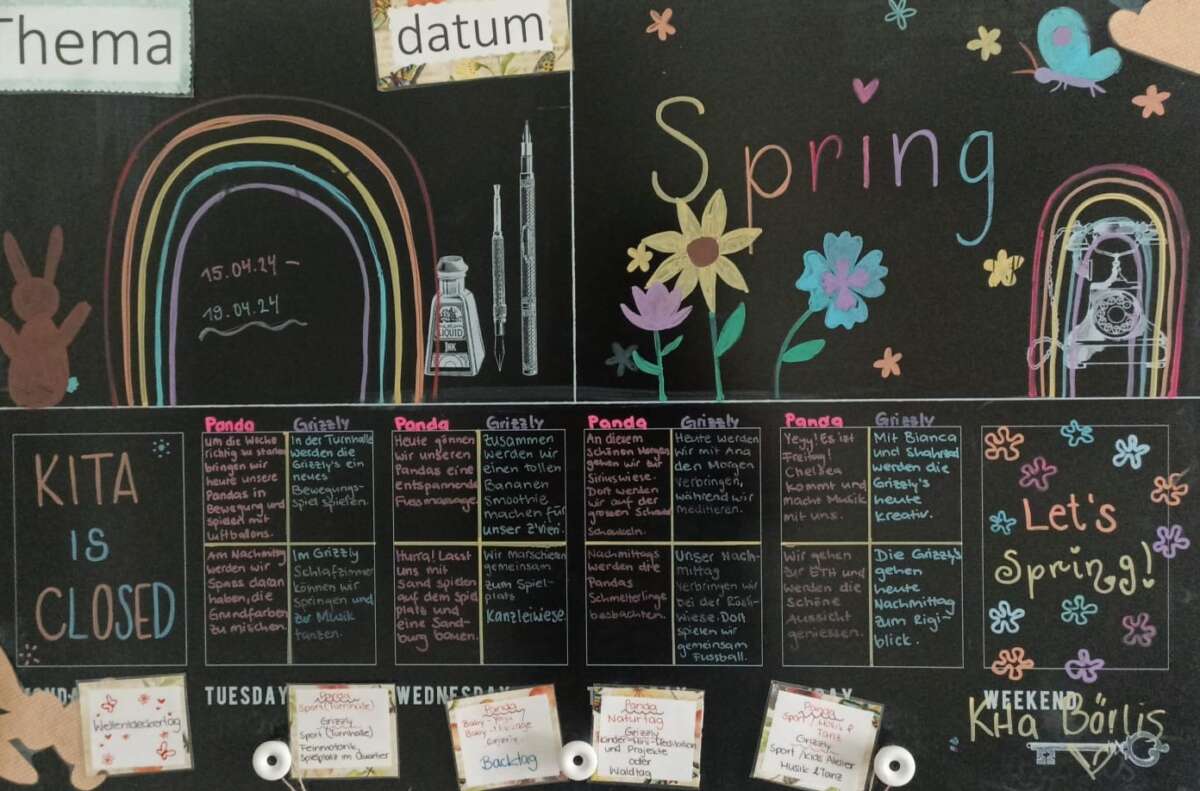 Thema
datum
15.04.24 –
19.04.24
LIQUID
INK
Spring
KITA
IS
CLOSED
Panda
Um die Woche
richtig zu starten
bringen wir
heute unsere
Pandas in
Bewegung und
spielen mit
Luftballons.
Am Nachmittag
werden wir
Spass daran
haben, die
Grundfarben
zu mischen.
Grizzly
In der Turnhalle
werden die
Grizzly's ein
neues
Bewegungs-
spiel spielen.
Im Grizzly
Schlafzimmer
können wir
springen und
zur Musik
tanzen.
Panda
Heute gönnen
wir unseren
Pandas eine
entspannende
Fussmassage.
Hurra! Lasst
uns mit
Sand spielen
auf dem Spiel
platz und
eine Sand-
burg bauen.
Grizzly
Zusammen
werden wir
einen tollen
Bananen
Smoothie
machen für
unser Z'vieri.
Wir marschieren
gemeinsam
zum Spiel-
platz
Kanzleiwiese.
Panda
An diesem
schönen Morgen
gehen wir zur
Siriuswiese.
Dort werden
wir auf der
grossen Schaukel
schaukeln.
Nachmittags
werden die
Pandas
Schmetterlinge
beobachten.
Grizzly
Heute werden
wir mit Ana
den Morgen
verbringen,
während wir
meditieren.
Unser Nach-
mittag
verbringen wir
bei der Rösli-
wiese. Dort
spielen wir
gemeinsam
Fussball.
Panda
Yeyy! Es ist
Freitag!
Chelsea
kommt und
macht Musik
mit uns.
Wir gehen
zur ETH und
werden die
schöne
Aussicht
geniessen.
Grizzly
Mit Bianca
und Shahrzad
werden die
Grizzly's
heute
kreativ.
Die Grizzly's
gehen
heute
Nachmittag
zum Rigi-
blick.
Let's
Spring!
TUESDAY
WEDNESDAY
WEEKEND
Weltentdeckertag
Panda
Sport (Turnhalle)
Grizzly
Sport (Turnhalle)
Feinmotorik
Spielplatz im Quartier
Panda
Baby - Yoga
Grizzly
Backtag
Panda
Naturtag
Grizzly
Kinder-Yoga-Meditation
und Projekte
oder
Waldtag
Panda
Tanz
Grizzly
Sport / Kids Atelier
Musik & Tanz
Kita Börlis